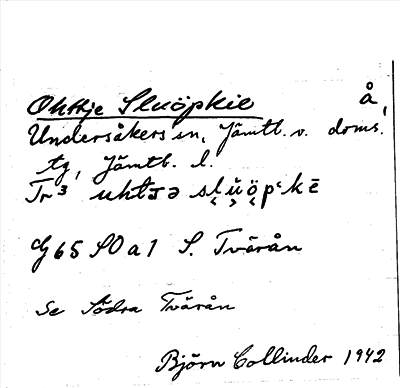 Ohttje Sluöpkie å,
Undersåkers sn, Jämtl. v. doms.
tg, Jämtl. l.
Tr³
G 65 SO a 1 S. Tvärån
Se Södra Tvärån
Björn Collinder 1942